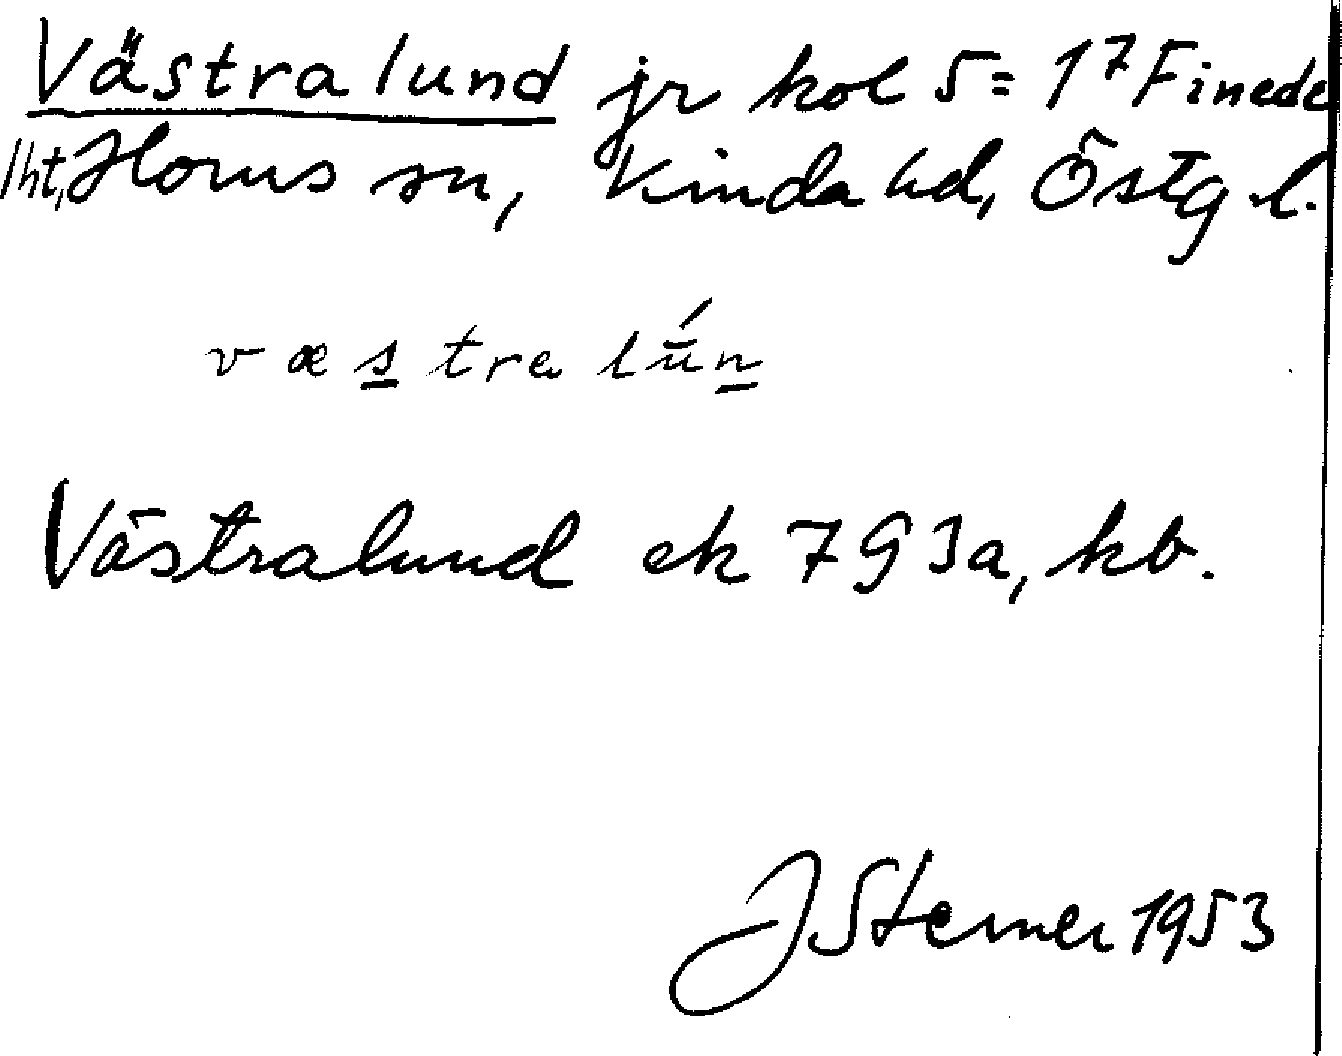 Västralund jr kol 5 = 1⁷ Finede
lht, Horns sn, Kinda hd, Östg l.
væstralún
Västralund ek 793a, kb.
J Sterner 1953